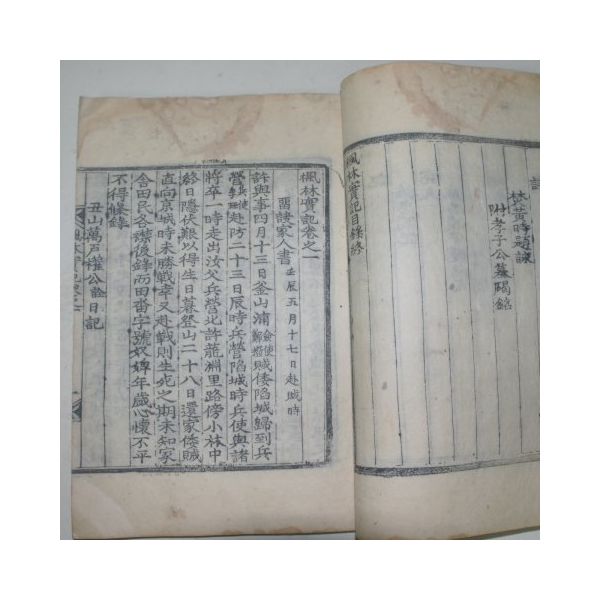 附孝子公墓碣銘
楓林實記目錄終
楓林實記卷之一
留諸家人書 壬辰五月十七日赴賊時
許與事四月十三日釜山浦僉使鄭撥賊倭陷城歸到兵
營兵使赴防二十三日辰時兵營陷城時兵使與諸
將卒一時走出汝父兵營北許龍淵里路傍小林中
終日隱伏艱以得生日暮登山二十八日還家倭賊
直向京城時未勝戰幸又赴戰則生死之期未知家
舍田民各襟後錄而田畓字號奴婢年歲心懷不平
不得條錄
丑山萬戶權公詮日記